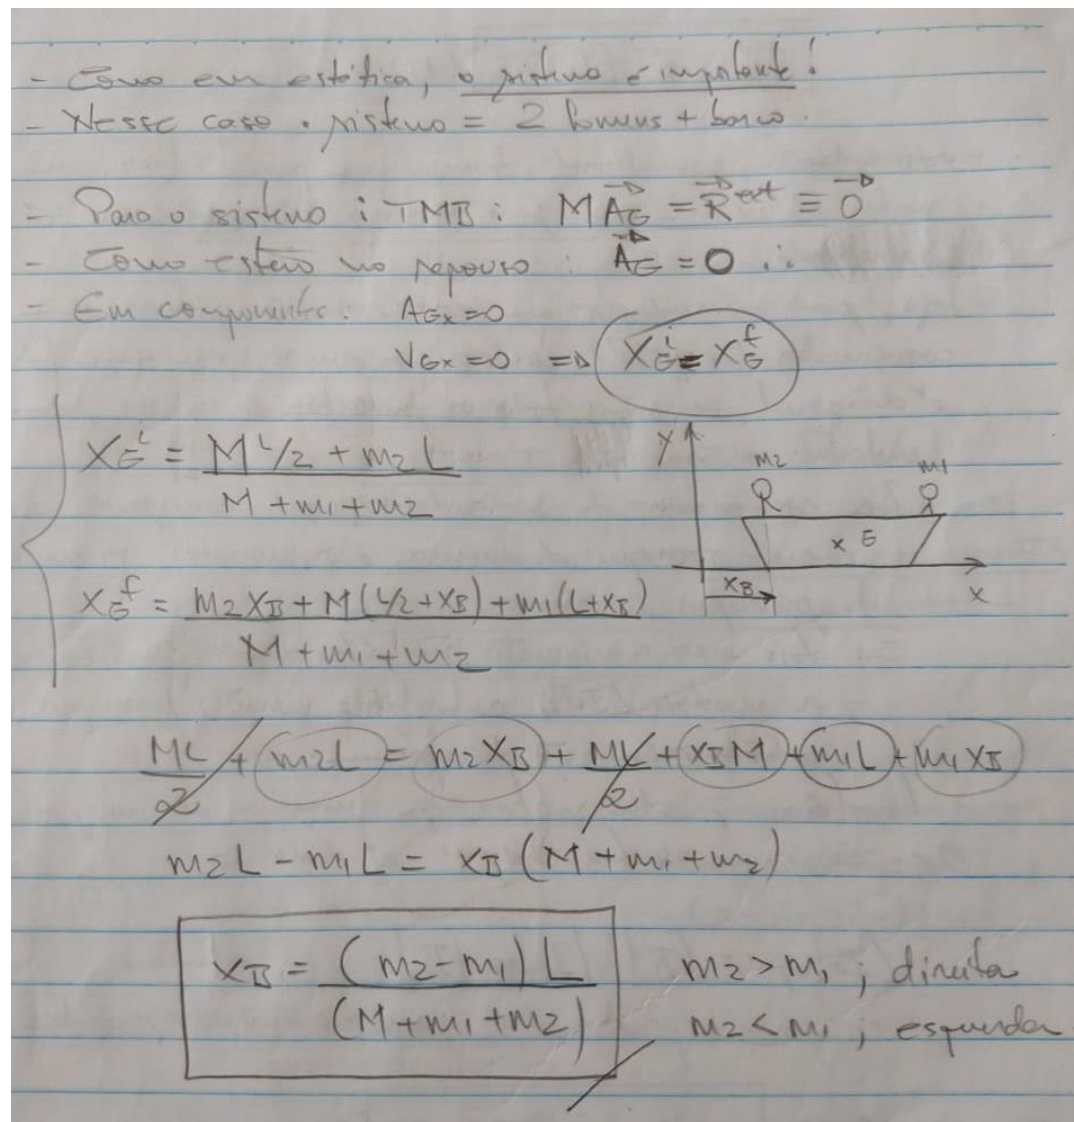 - Como em estática, o sistema é importante!
- Nesse caso o sistema = 2 homens + barco.
- Para o sistema : TMB : M A⃗G = R⃗ext ≡ 0⃗
- Como estava no repouso : A⃗G = 0 ∴
- Em componentes: AGx = 0
VGx = 0 => XGⁱ = XGᶠ
XGⁱ = (M L/2 + m2 L) / (M + m1 + m2)
y
m2
m1
x G
XB
x
XGᶠ = (m2 XB + M(L/2 + XB) + m1(L + XB)) / (M + m1 + m2)
ML/2 + m2L = m2XB + ML/2 + XBM + m1L + m1XB
m2L - m1L = XB (M + m1 + m2)
XB = (m2 - m1) L / (M + m1 + m2)
m2 > m1 ; direita
m2 < m1 ; esquerda